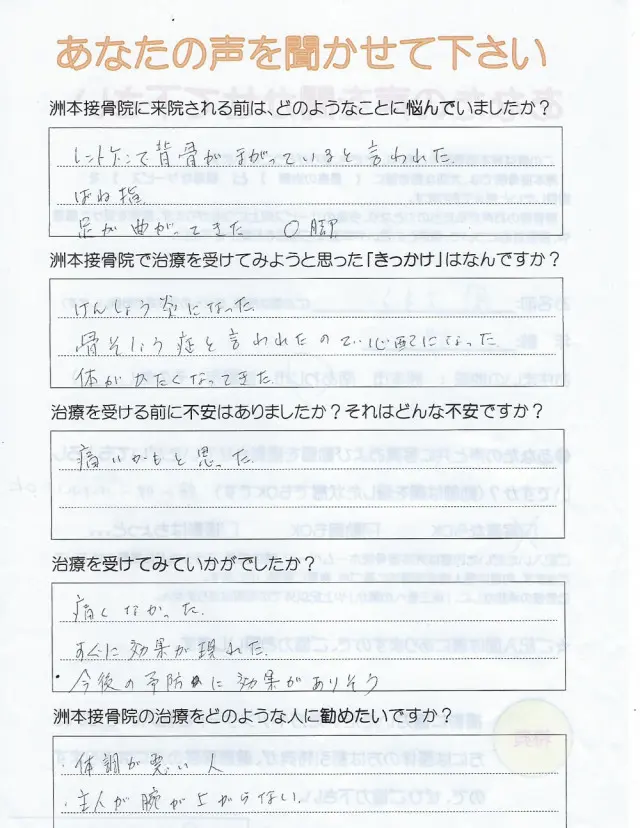 あなたの声を聞かせて下さい
洲本接骨院に来院される前は、どのようなことに悩んでいましたか?
レントゲンで背骨がまがっていると言われた
ばね指
足が曲がってきた O脚
洲本接骨院で治療を受けてみようと思った「きっかけ」はなんですか?
けんしょう炎になった
骨そしょう症と言われたので心配になった
体がかたくなってきた
治療を受ける前に不安はありましたか?それはどんな不安ですか?
痛いかもと思った
治療を受けてみていかがでしたか?
痛くなかった.
すぐに効果が現れた.
・今後の予防に効果がありそう
洲本接骨院の治療をどのような人に勧めたいですか?
・体調が悪い人
・主人が腕が上がらない.